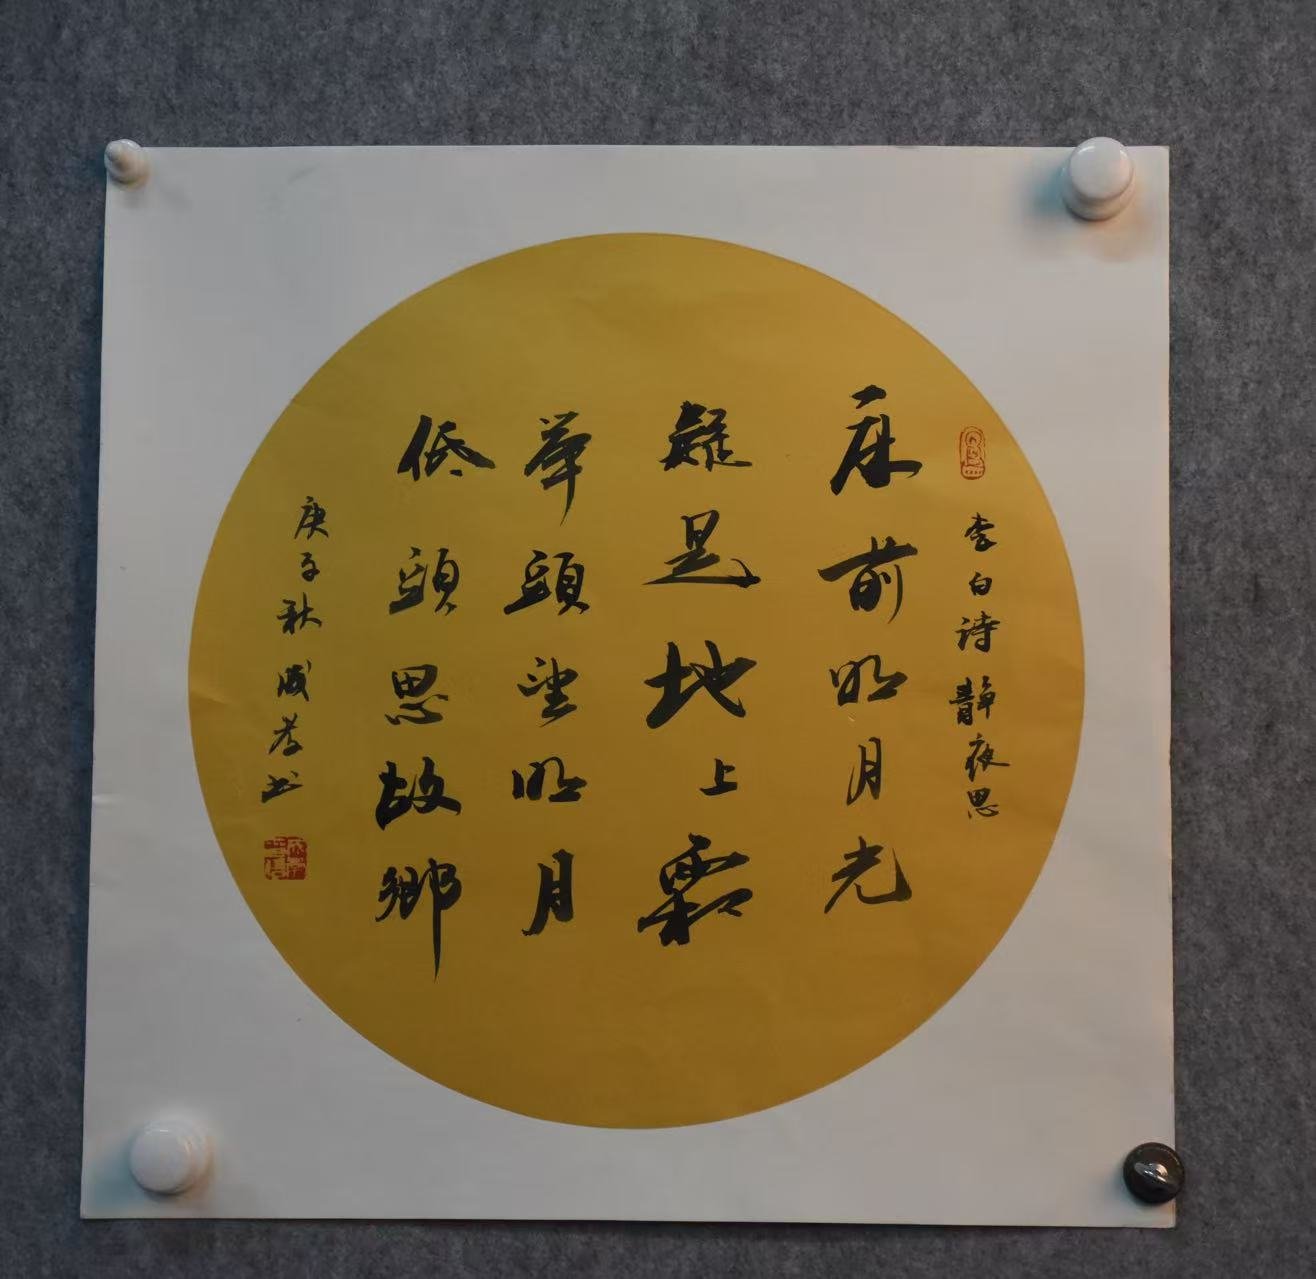 李白诗 静夜思
床前明月光
疑是地上霜
举頭望明月
低頭思故鄉
庚子秋 成芳书